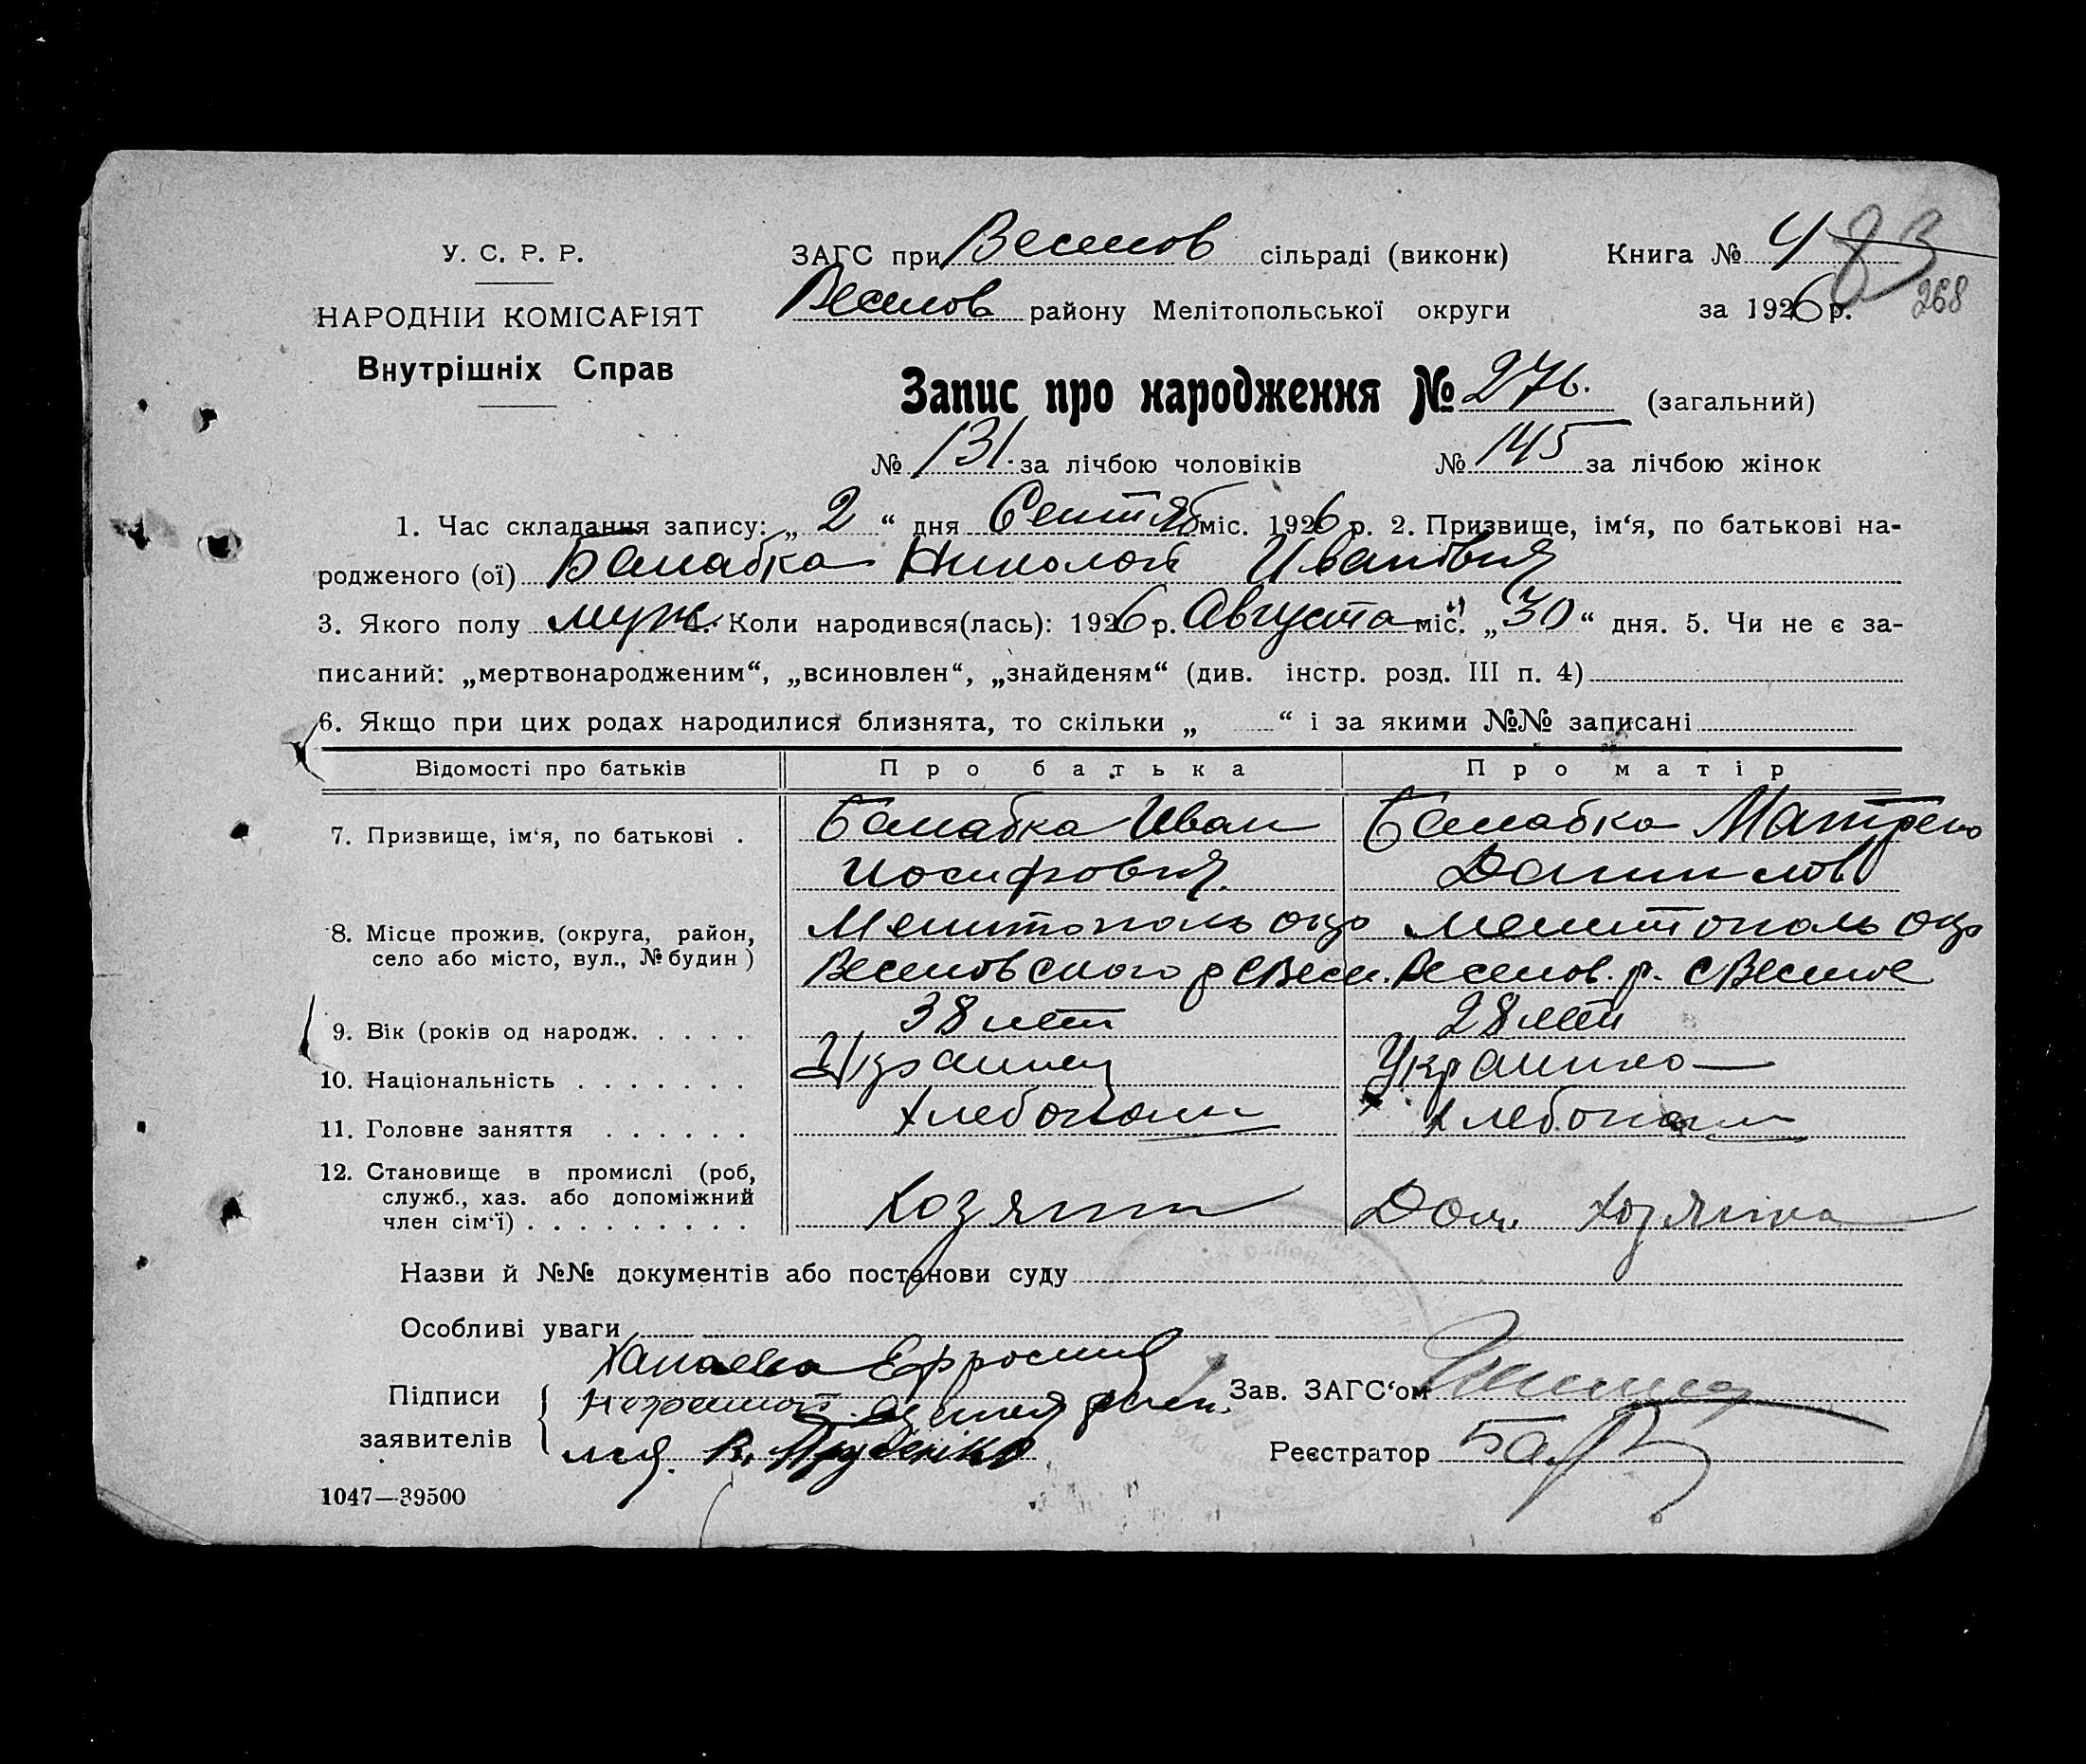 У. С. Р. Р.
НАРОДНІЙ КОМІСАРІЯТ
Внутрішніх Справ
ЗАГС при Веселов сільраді (виконк)
Веселов району Мелітопольської округи
Книга № 4 83
за 1926 р. 268
Запис про народження № 276. (загальний)
№ 131. за лічбою чоловіків № 145 за лічбою жінок
1. Час складання запису: „ 2 “ дня Сентяб міс. 1926 р. 2. Призвище, ім‘я, по батькові на-
родженого (ої) Балабка Николай Иванович
3. Якого полу муж. 4. Коли народився(лась): 1926 р. Августа міс. „ 30 “ дня. 5. Чи не є за-
писаний: „мертвонародженим“, „всиновлен“, „знайденям“ (див. інстр. розд. III п. 4)
6. Якщо при цих родах народилися близнята, то скільки „ “ і за якими №№ записані
Відомості про батьків Про батька Про матір
7. Призвище, ім‘я, по батькові . Балабка Иван Балабка Матрена
Иосифович. Данилов
8. Місце прожив. (округа, район, Мелитополь окр Мелитополь окр
село або місто, вул., № будин) Веселовского р с Весел. Веселов. р. с Веселое
9. Вік (років од народж. . . . . 38 лет 28 лет
10. Національність . . . . . . . Украинец Украинка
11. Головне заняття . . . . . . Хлебопаш Хлебопаш
12. Становище в промислі (роб,
служб., хаз. або допоміжний
член сім‘ї) . . . . . . . . . Хозяин Дом. Хозяйка
Назви й №№ документів або постанови суду
Особливі уваги
Ефросиния
Підписи
заявителів
Зав. ЗАГС‘ом
Реєстратор
1047—39500